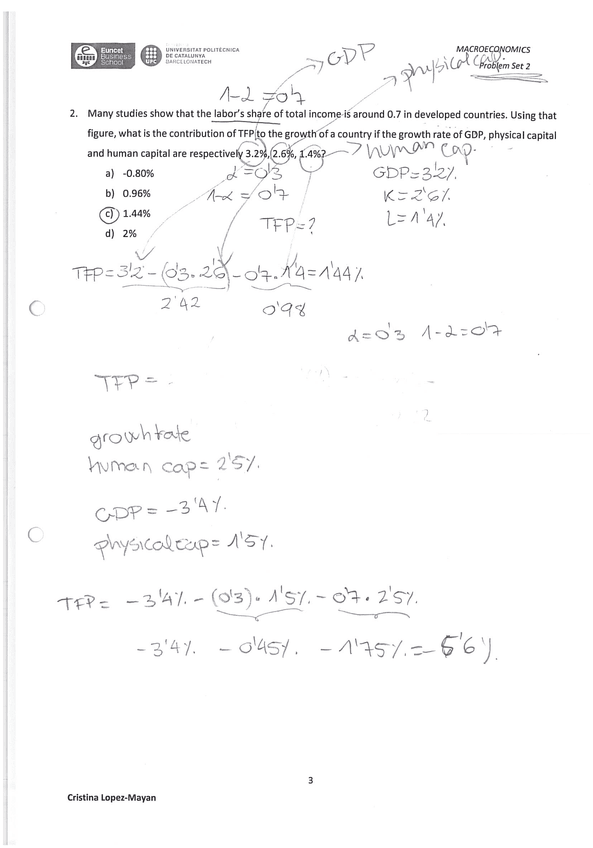 Euncet Business School
UPC
UNIVERSITAT POLITÈCNICA DE CATALUNYA BARCELONATECH
MACROECONOMICS
Problem Set 2
GDP
physical cap.
1-α = 0'7
2. Many studies show that the labor's share of total income is around 0.7 in developed countries. Using that
figure, what is the contribution of TFP to the growth of a country if the growth rate of GDP, physical capital
and human capital are respectively 3.2%, 2.6%, 1.4%?
human cap.
a) -0.80%
b) 0.96%
c) 1.44%
d) 2%
α = 0'3
1-α = 0'7
TFP = ?
GDP = 3'2%
K = 2'6%
L = 1'4%
TFP = 3'2 - (0'3 · 2'6) - 0'7 · 1'4 = 1'44%
2'42
0'98
α = 0'3 1-α = 0'7
TFP =
growth rate
human cap = 2'5%
GDP = -3'4%
physical cap = 1'5%
TFP = -3'4% - (0'3) · 1'5% - 0'7 · 2'5%
-3'4% - 0'45% - 1'75% = -5'6%
3
Cristina Lopez-Mayan